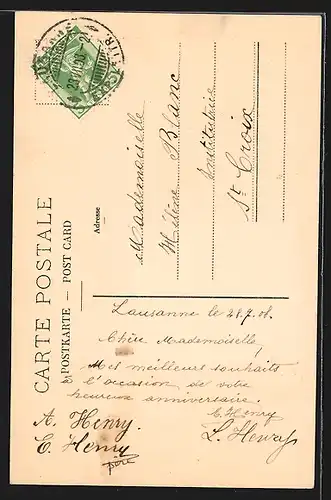 CARTE POSTALE
POSTKARTE — POST CARD
Adresse
Mademoiselle
Hélène Blanc
Institutrice
Ste Croix
Lausanne le 28.7.08.
Chère Mademoiselle,
Mes meilleurs souhaits
à l'occasion de votre
heureux anniversaire.
E. Henry
A. Henry.
L. Henry
E. Henry
père